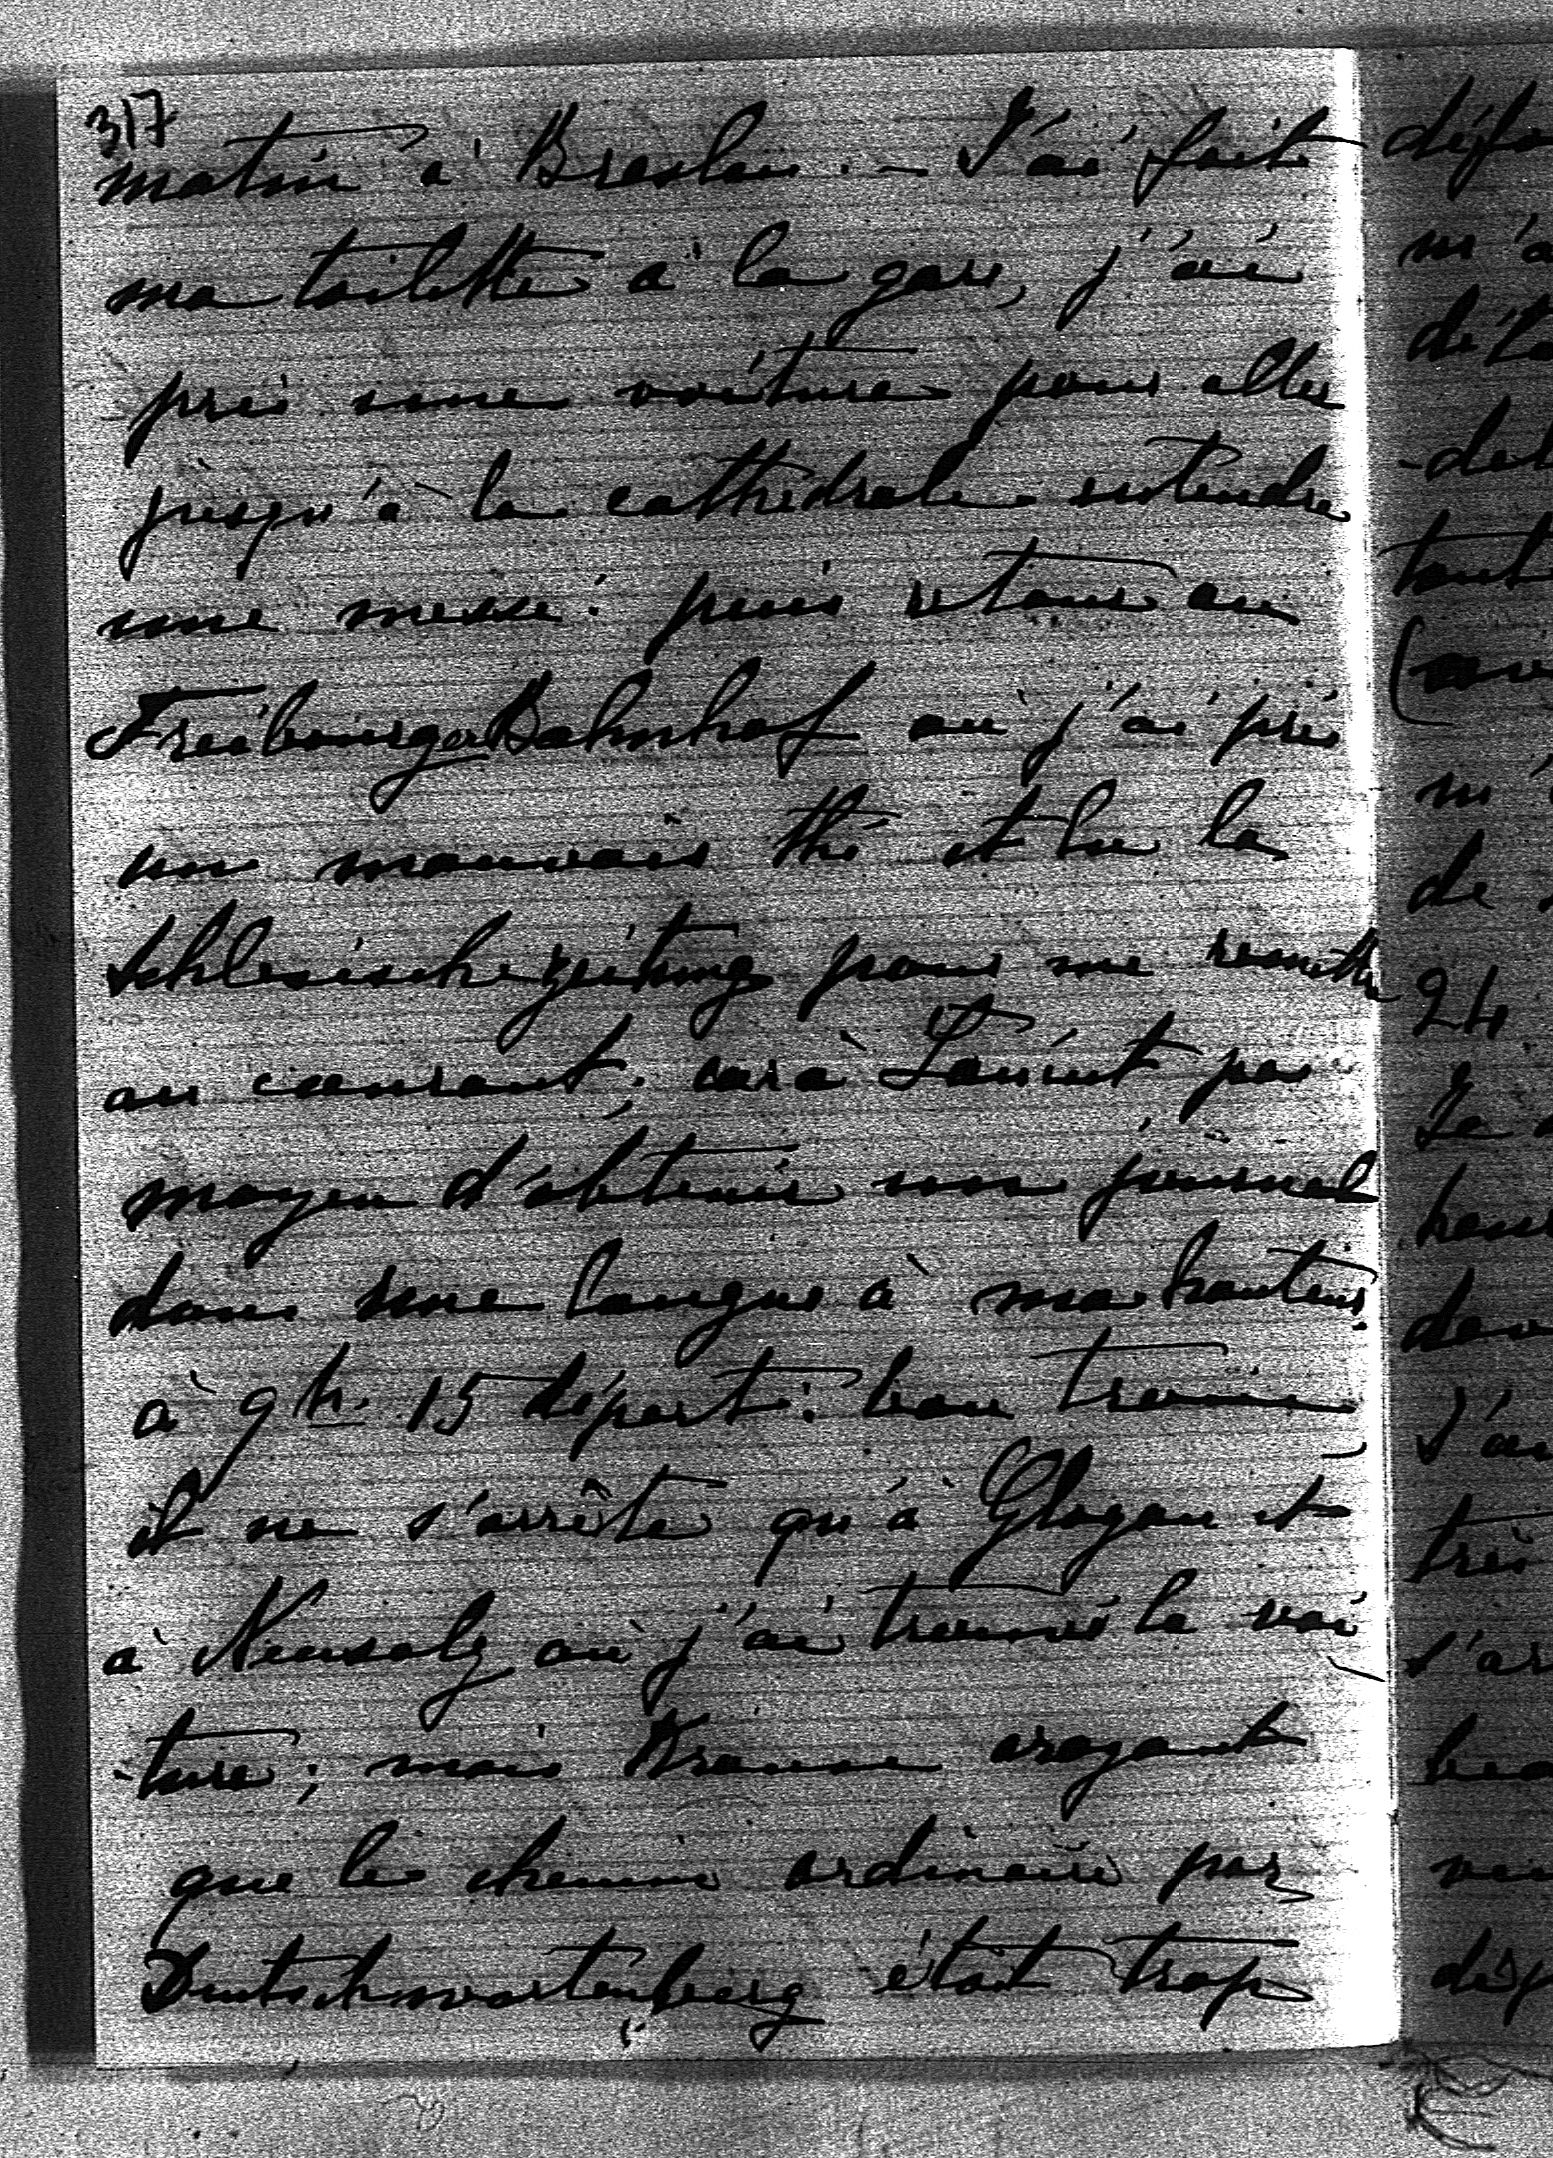 317
matin à Breslau. – J'ai fait
ma toilette à la gare, j'ai
pris une voiture pour aller
jusqu'à la cathédrale entendre
une messe: puis retour au
Freiburger Bahnhof où j'ai pris
un mauvais thé et lu la
Schlesische zeitung pour me remettre
au courant, car à Lancut pas
moyen d'obtenir un journal
dans une langue à ma hauteur.
à 9 h. 15 départ: bon train
il ne s'arrête qu'à Glogau et
à Neusalz où j'ai trouvé la voi
-ture; mais Krause croyant
que le chemin ordinaire par
Deutschwartenberg était trop
m'a
de
24